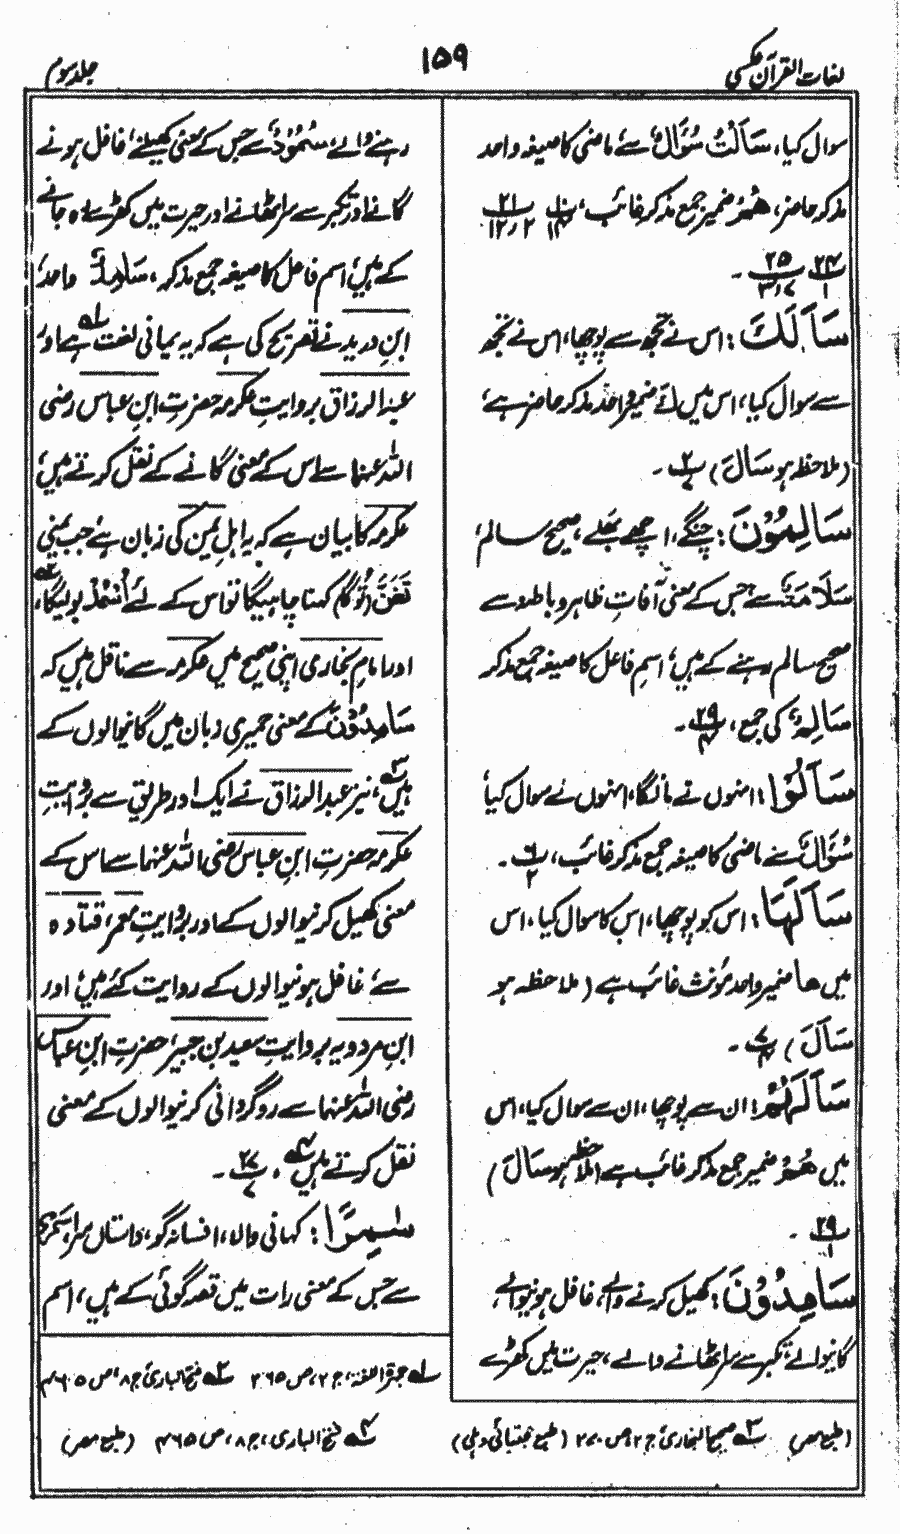 لغات القرآن عکسی
۱۵۹
جلد سوم
سوال کیا، سَأَلْتُ سُؤَالٌ سے، ماضی کا صیغہ واحد
مذکر حاضر، هُمْ ضمیر جمع مذکر غائب،
۲۵ ۲۴
سَأَلَكَ: اس نے تجھ سے پوچھا، اس نے تجھ
سے سوال کیا، اس میں كَ ضمیر واحد مذکر حاضر ہے،
(ملاحظہ ہو سَأَلَ) ۲
سَالِمُوْنَ: چنگے، اچھے بھلے، صحیح سالم،
سَلَامَةٌ سے جس کے معنی آفاتِ ظاہر و باطن سے
صحیح سالم رہنے کے ہیں، اسمِ فاعل کا صیغہ جمع مذکر
سَالِمٌ کی جمع، ۲۹
سَأَلُوْا: انہوں نے مانگا، انہوں نے سوال کیا
سُؤَالٌ سے ماضی کا صیغہ جمع مذکر غائب، ۶
سَأَلَهَا: اس کو پوچھا، اس کا سوال کیا، اس
میں ها ضمیر واحد مؤنث غائب ہے (ملاحظہ ہو
سَأَلَ) ۷
سَأَلَهُمْ: ان سے پوچھا، ان سے سوال کیا، اس
میں هُمْ ضمیر جمع مذکر غائب ہے (ملاحظہ ہو سَأَلَ)
۲۹
سَامِدُوْنَ: کھیل کرنے والے، غافل ہونیوالے،
گانیوالے، تکبر سے سر اٹھانے والے، حیرت میں کھڑے
رہنے والے، سُمُوْدٌ سے جس کے معنی کھیلنے، غافل ہونے
گانے اور تکبر سے سر اٹھانے اور حیرت میں کھڑے رہ جانے
کے ہیں، اسم فاعل کا صیغہ جمع مذکر، سَامِدٌ واحد،
ابنِ درید نے تصریح کی ہے کہ یہ یمانی لغت ہے، اور
عبد الرزاق بروایتِ عکرمہ حضرتِ ابنِ عباس رضی
اللہ عنہما سے اس کے معنی گانے کے نقل کرتے ہیں،
عکرمہ کا بیان ہے کہ یہ اہلِ یمن کی زبان ہے، جب یمنی
تَغَنَّ (تو گا) کہنا چاہیگا تو اس کے لئے اُسْمُدْ بولیگا،
اور امامِ بخاری اپنی صحیح میں عکرمہ سے ناقل ہیں کہ
سَامِدُوْنَ کے معنی حمیری زبان میں گانیوالوں کے
ہیں، نیز عبد الرزاق نے ایک اور طریق سے بروایتِ
عکرمہ حضرتِ ابنِ عباس رضی اللہ عنہما سے اس کے
معنی کھیل کرنیوالوں کے اور بروایتِ معمر، قتادہ
سے، غافل ہونیوالوں کے روایت کئے ہیں، اور
ابنِ مردویہ بروایتِ سعید بن جبیر، حضرتِ ابنِ عباس
رضی اللہ عنہما سے روگردانی کرنیوالوں کے معنی
نقل کرتے ہیں، ۲۷
سٰمِرًا: کہانی والا، افسانہ گو، داستاں سرا،
سے جس کے معنی رات میں قصہ گوئی کے ہیں، اسم
(طبع مصر) ۳ صحیح البخاری، ج ۲، ص ۷۲۰ (طبع مجتبائی دہلی)
۱ جمہرة اللغة، ج ۲، ص ۲۶۵ ۲ فتح الباری، ج ۸، ص ۶۰۵
۴ فتح الباری، ج ۸، ص ۴۶۵ (طبع مصر)